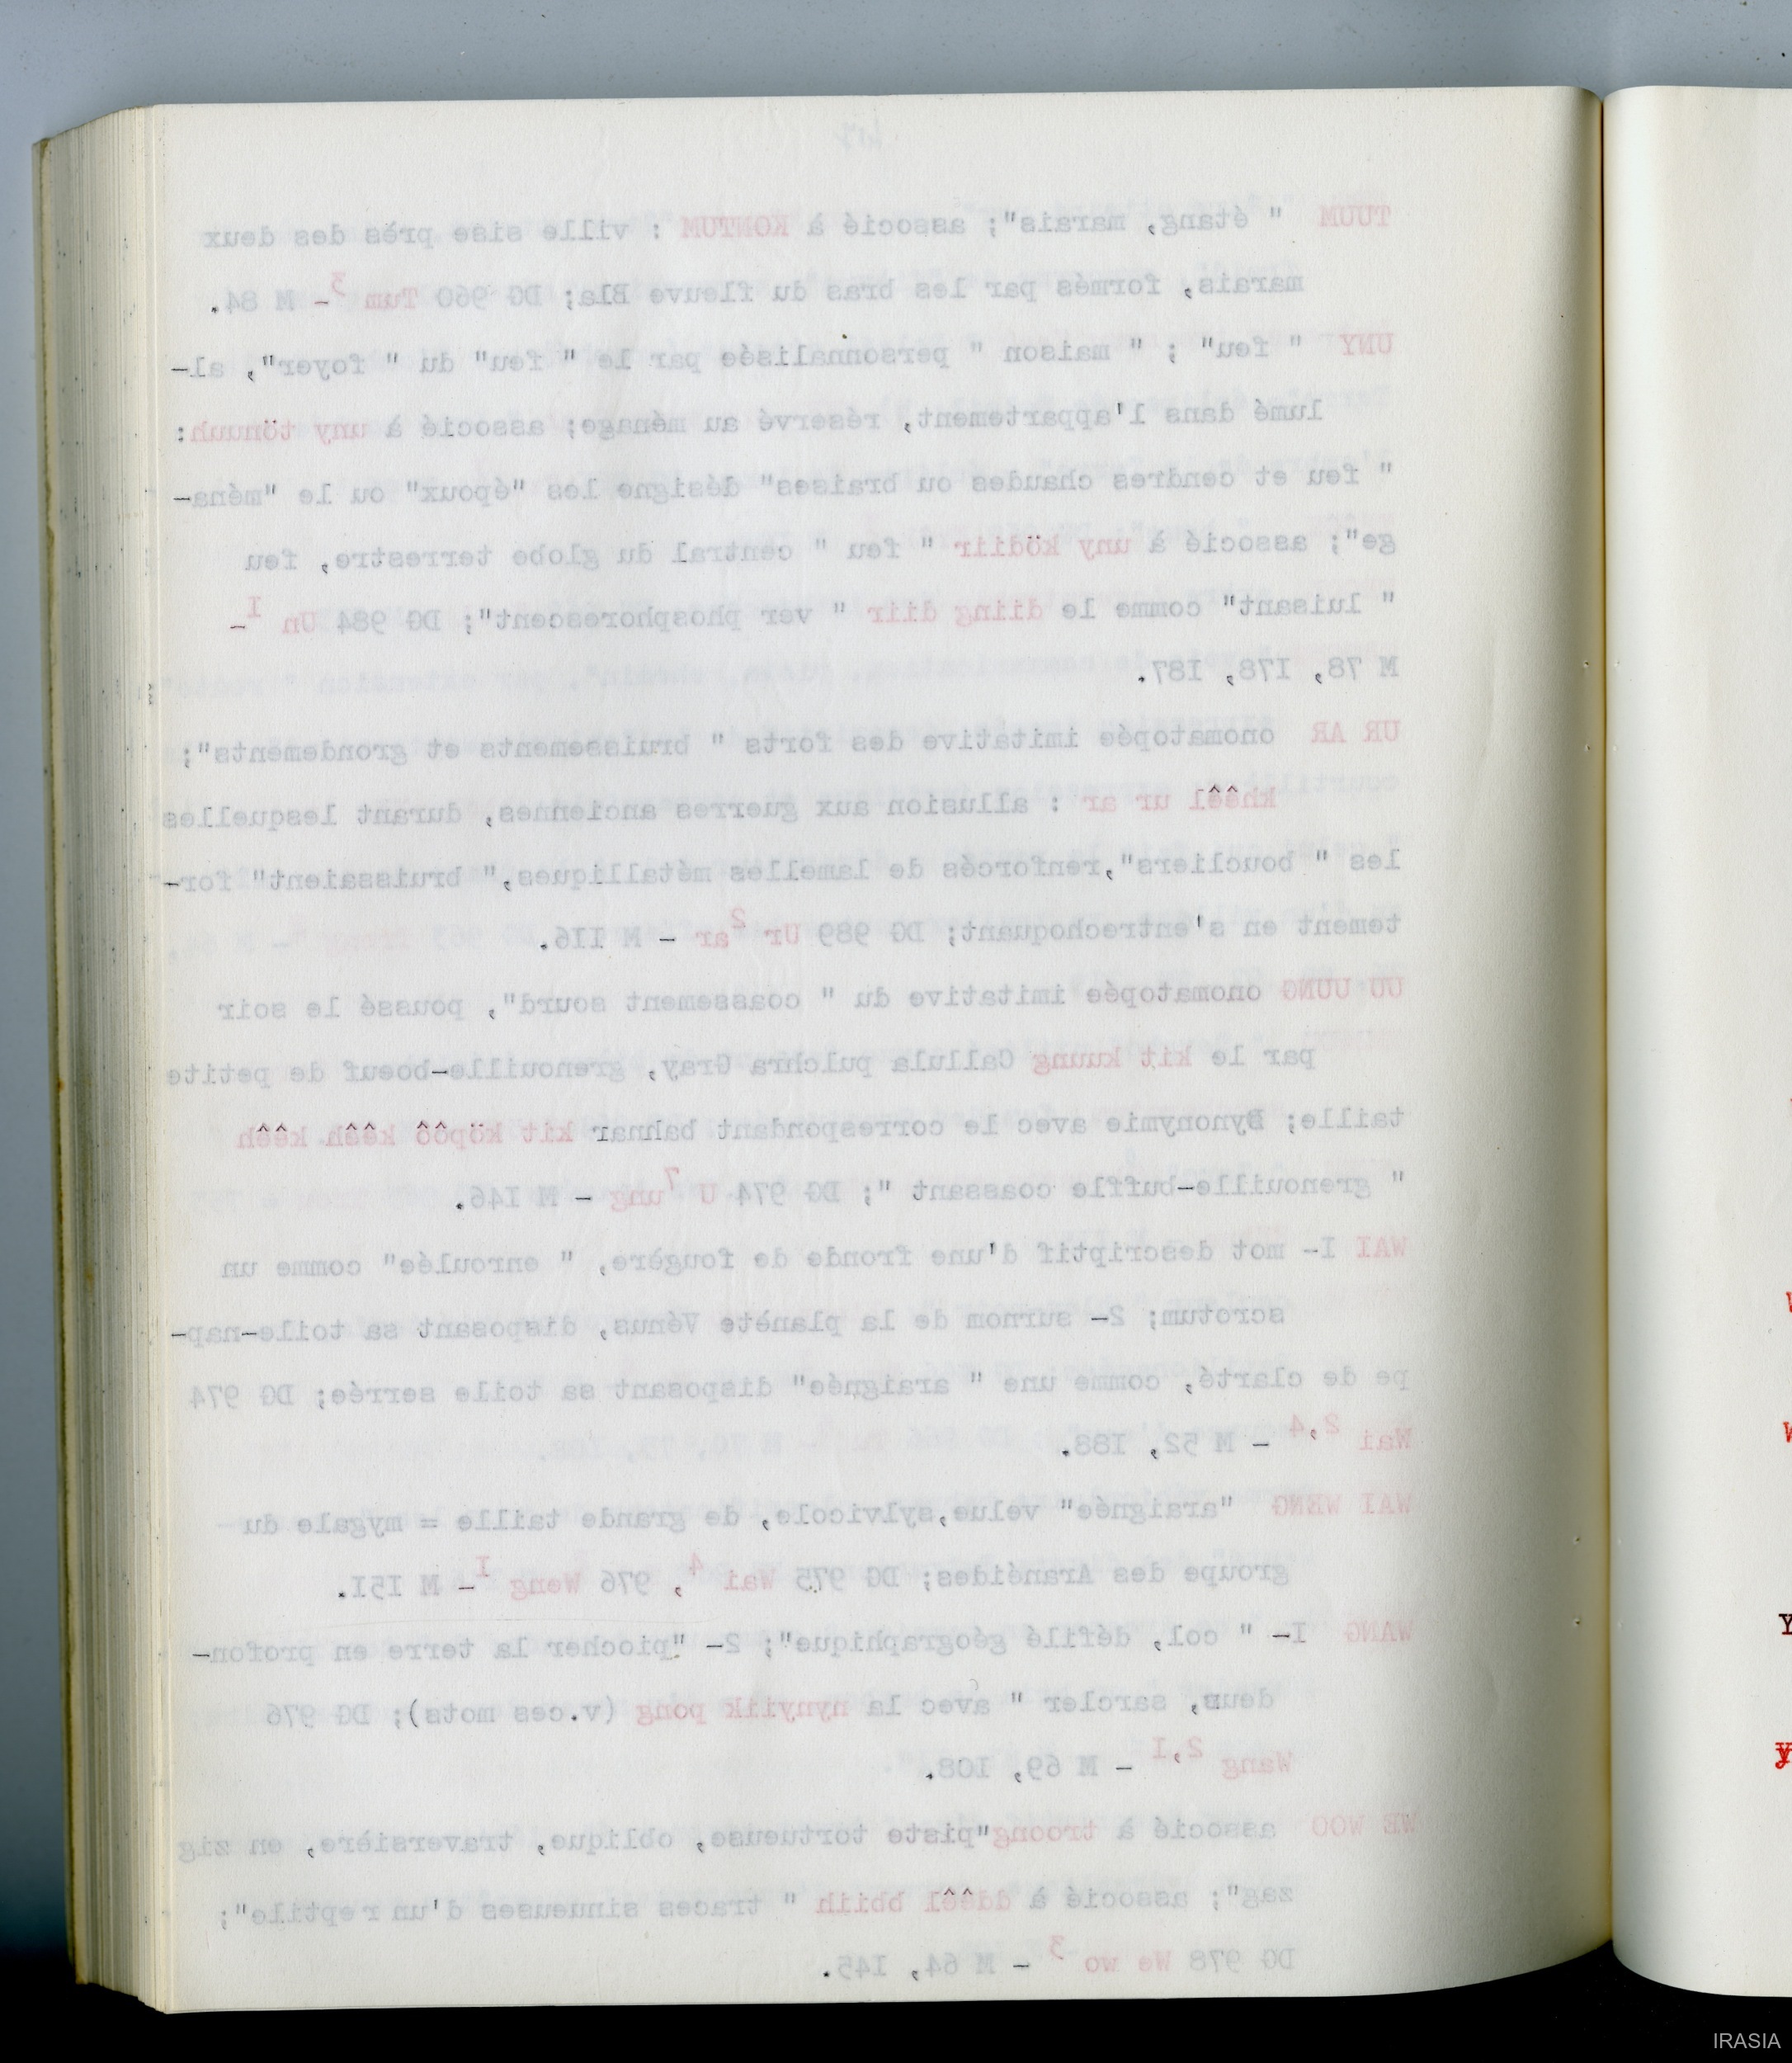 TUUM " étang, marais"; associé à KONTUM : ville sise près des deux
marais, formés par les bras du fleuve Bla; DG 960 Tum 3 - M 84.
UNY " feu" ; " maison " personnalisée par le " feu" du " foyer", al-
lumé dans l'appartement, réservé au ménage; associé à uny tönuuh:
" feu et cendres chaudes ou braises" désigne les "époux" ou le "ména-
ge"; associé à uny ködiir " feu " central du globe terrestre, feu
" luisant" comme le diing diir " ver phosphorescent"; DG 984 Un I-
M 78, I78, I87.
UR AR onomatopée imitative des forts " bruissements et grondements";
khêêl ur ar : allusion aux guerres anciennes, durant lesquelles
les " boucliers",renforcés de lamelles métalliques," bruissaient" for-
tement en s'entrechoquant; DG 989 Ur 2 ar - M II6.
UU UUNG onomatopée imitative du " coassement sourd", poussé le soir
par le kit kuung Callula pulchra Gray, grenouille-boeuf de petite
taille; Synonymie avec le correspondant bahnar kit köpôô kêêh kêêh
" grenouille-buffle coassant "; DG 974 U 7 ung - M I46.
WAI I- mot descriptif d'une fronde de fougère, " enroulée" comme un
scrotum; 2- surnom de la planète Vénus, disposant sa toile-nap-
pe de clarté, comme une " araignée" disposant sa toile serrée; DG 974
Wai 2,4 - M 52, I88.
WAI WENG "araignée" velue,sylvicole, de grande taille = mygale du
groupe des Aranéides; DG 975 Wai 4, 976 Weng I- M I5I.
WANG I- " col, défilé géographique"; 2- "piocher la terre en profon-
deur, sarcler " avec la nynyiik pong (v.ces mots); DG 976
Wang 2,I - M 69, I08.
WE WOO associé à troong"piste tortueuse, oblique, traversière, en zig
zag"; associé à ddêêl bbiih " traces sinueuses d'un reptile";
DG 978 We wo 3 - M 64, I45.
Y
y
IRASIA